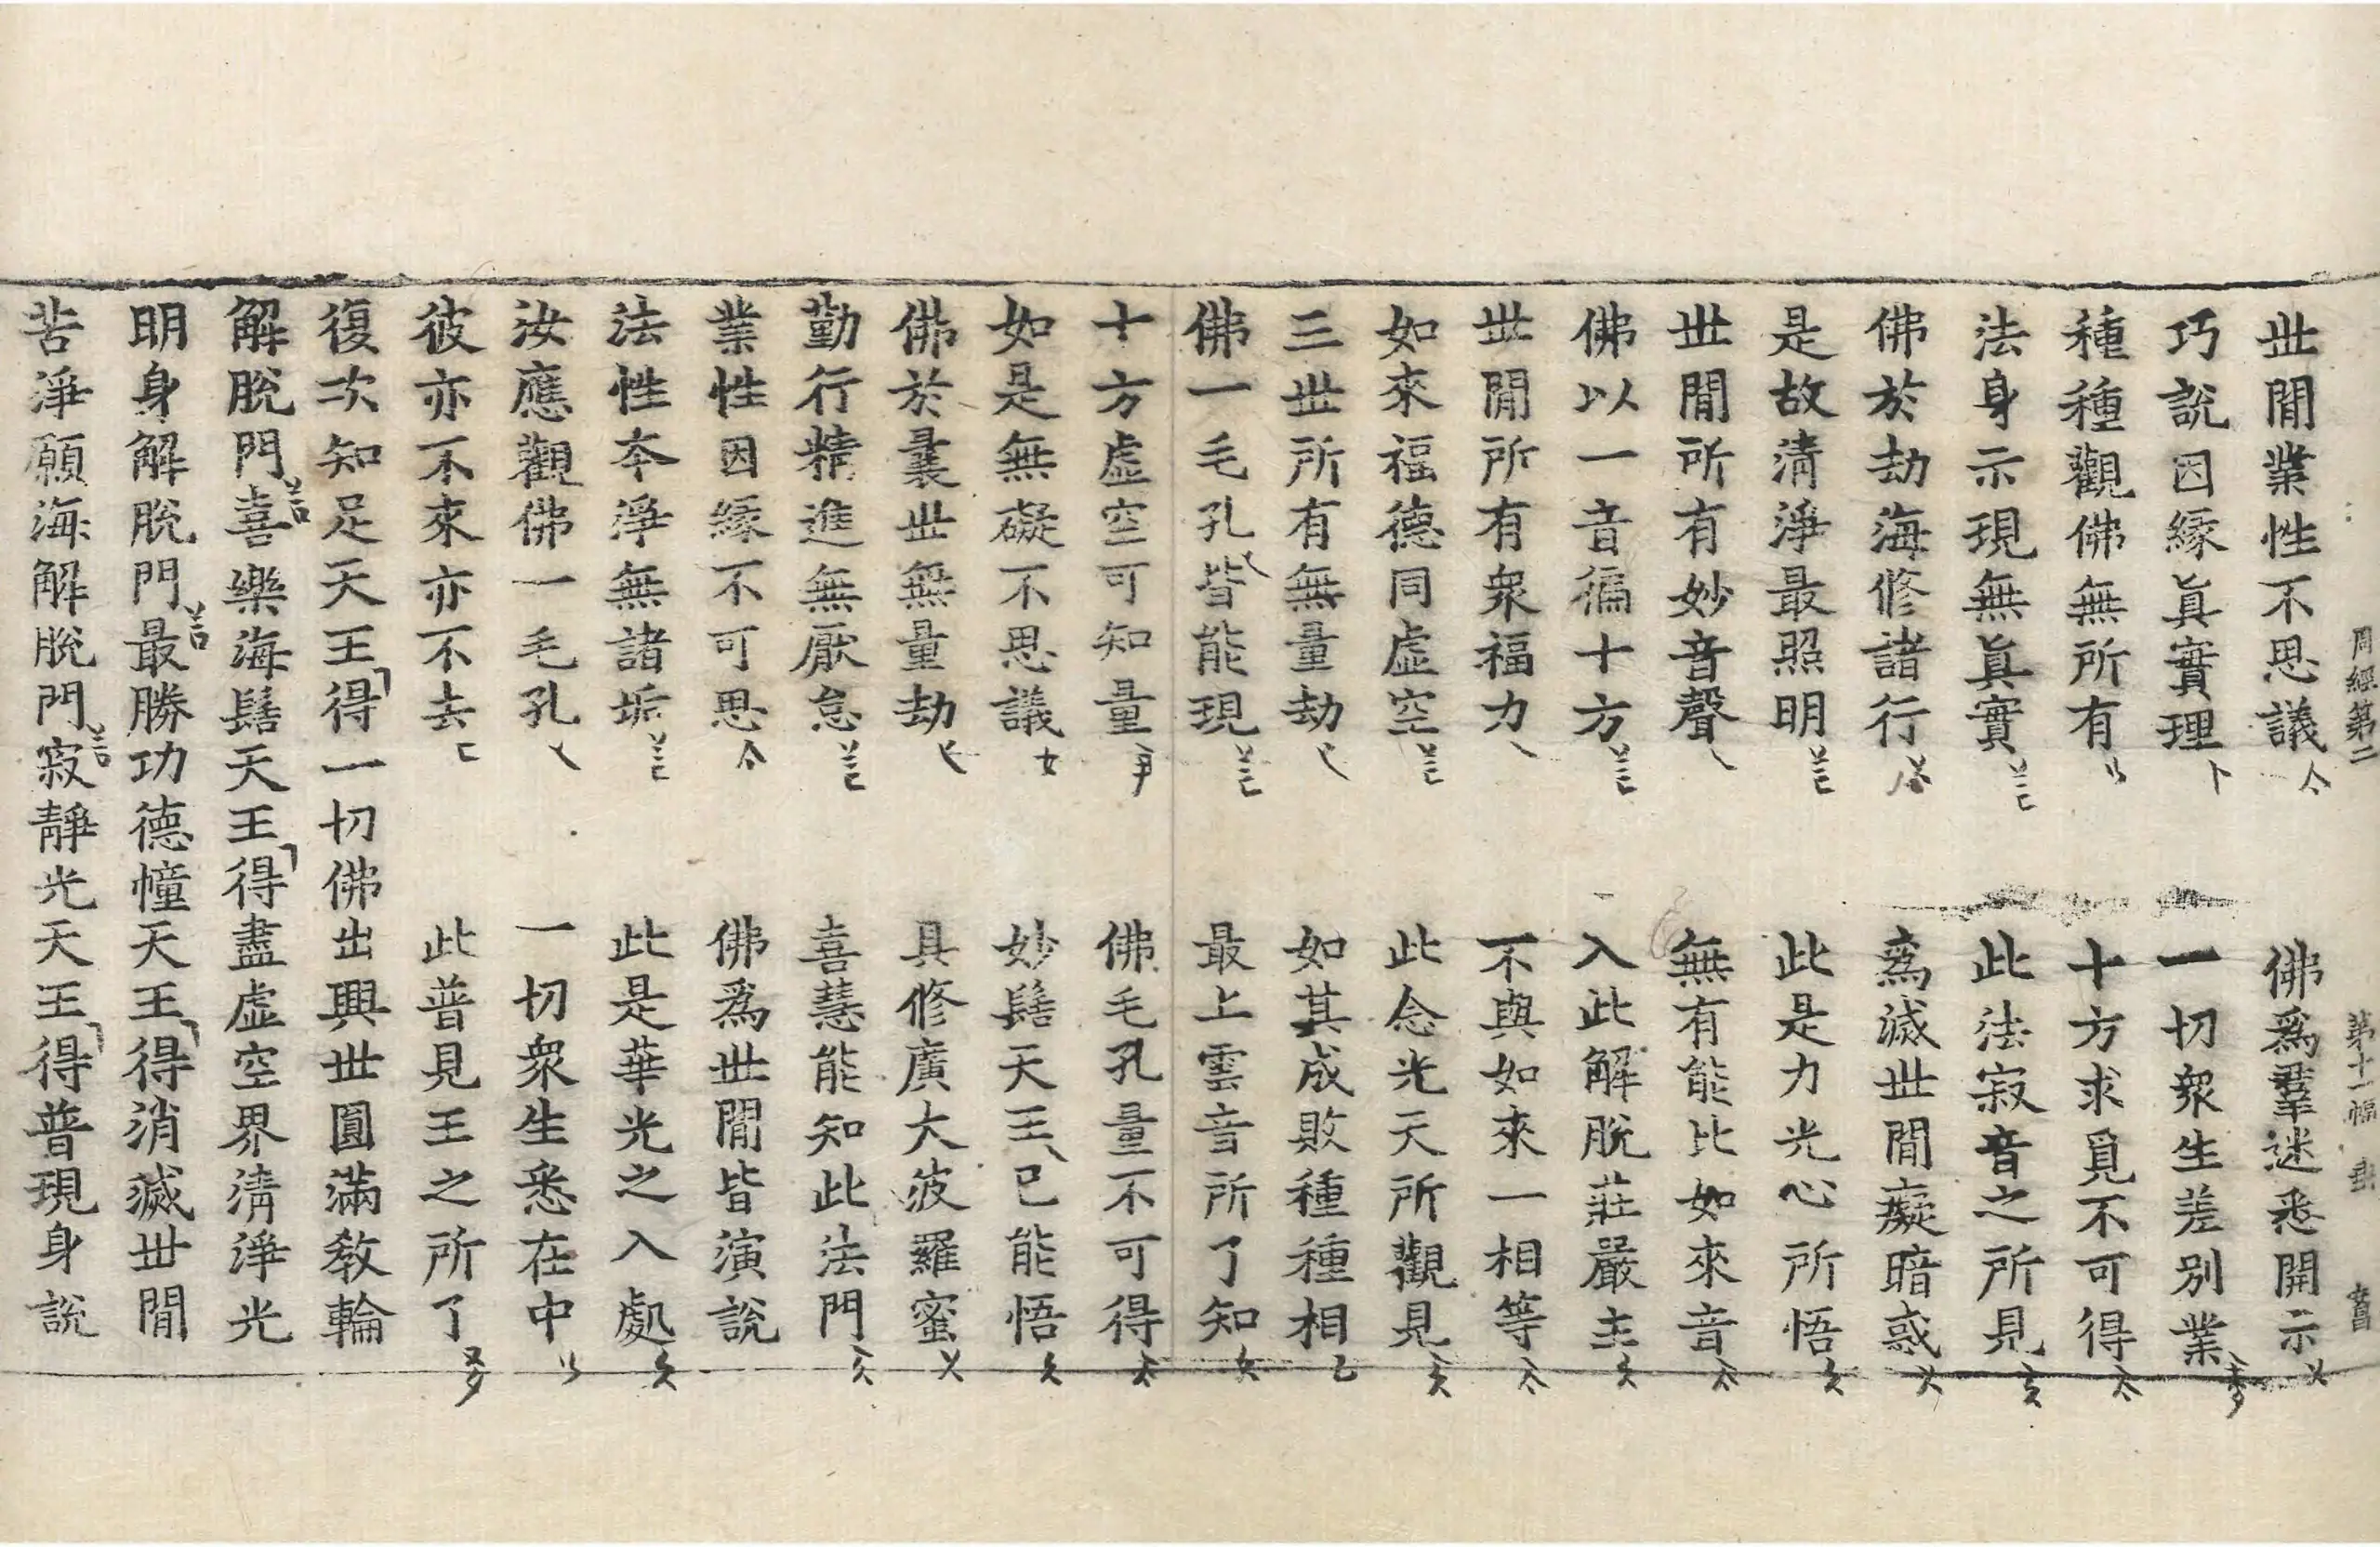 周經第二 第十一幅
世間業性不思議 佛爲羣迷悉開示
巧說因緣眞實理 一切衆生差別業
種種觀佛無所有 十方求覓不可得
法身示現無眞實 此法寂音之所見
佛於劫海修諸行 爲滅世間癡暗惑
是故清淨最照明 此是力光心所悟
世間所有妙音聲 無有能比如來音
佛以一音徧十方 入此解脫莊嚴主
世間所有衆福力 不與如來一相等
如來福德同虛空 此念光天所觀見
三世所有無量劫 如其成敗種種相
佛一毛孔皆能現 最上雲音所了知
十方虛空可知量 佛毛孔量不可得
如是無礙不思議 妙髻天王已能悟
佛於曩世無量劫 具修廣大波羅蜜
勤行精進無厭怠 喜慧能知此法門
業性因緣不可思 佛爲世間皆演說
法性本淨無諸垢 此是華光之入處
汝應觀佛一毛孔 一切衆生悉在中
彼亦不來亦不去 此普見王之所了
復次知足天王得一切佛出興世圓滿教輪
解脫門喜樂海髻天王得盡虛空界清淨光
明身解脫門最勝功德幢天王得消滅世間
苦淨願海解脫門寂靜光天王得普現身說